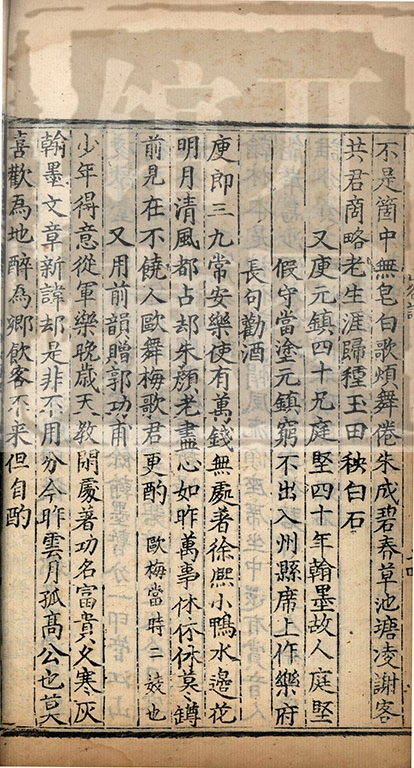 不是箇中無皂白歌煩舞倦朱成碧春草池塘凌謝客
共君商略老生涯歸種玉田秧白石
又庾元鎮四十兄庭堅四十年翰墨故人庭堅
假守當塗元鎮窮不出入州縣席上作樂府
長句勸酒
庾郎三九常安樂使有萬錢無處著徐熙小鴨水邊花
明月清風都占却朱顏老盡心如昨萬事休休休莫罇
前見在不饒人歐舞梅歌君更酌 歐梅當時二妓也
又用前韻贈郭功甫
少年得意從軍樂晚歲天教閒處著功名富貴久寒灰
翰墨文章新諱却是非不用分今昨雲月孤高公也莫
喜歡為地醉為鄉飲客不來但自酌